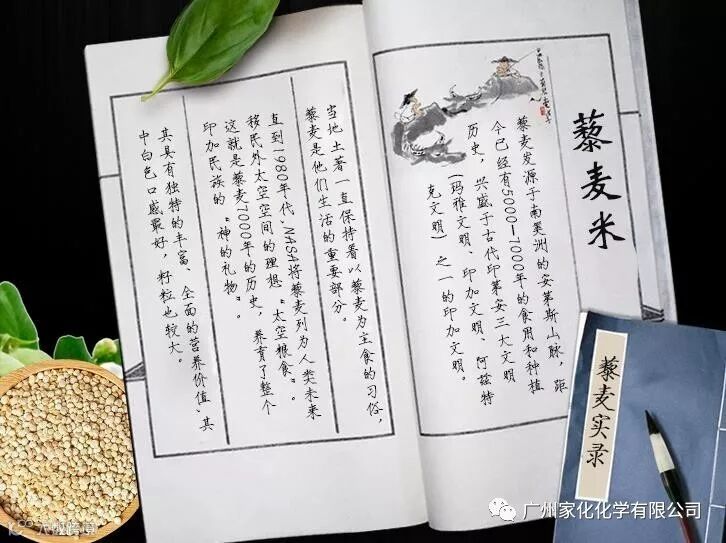 藜麦米
藜麦发源于南美洲的安第斯山脉，距
今已经有5000—7000年的食用和种植
历史，兴盛于古代印第安三大文明
（玛雅文明、印加文明、阿兹特
克文明）之一的印加文明。
当地土著一直保持着以藜麦为主食的习俗，
藜麦是他们生活的重要部分。
直到1980年代，NASA将藜麦列为人类未来
移民外太空空间的理想“太空粮食”。
这就是藜麦7000年的历史，养育了整个
印加民族的“神的礼物”。
其具有独特的丰富、全面的营养价值，其
中白色口感最好，籽粒也较大。
藜麦实录
广州家化化学有限公司